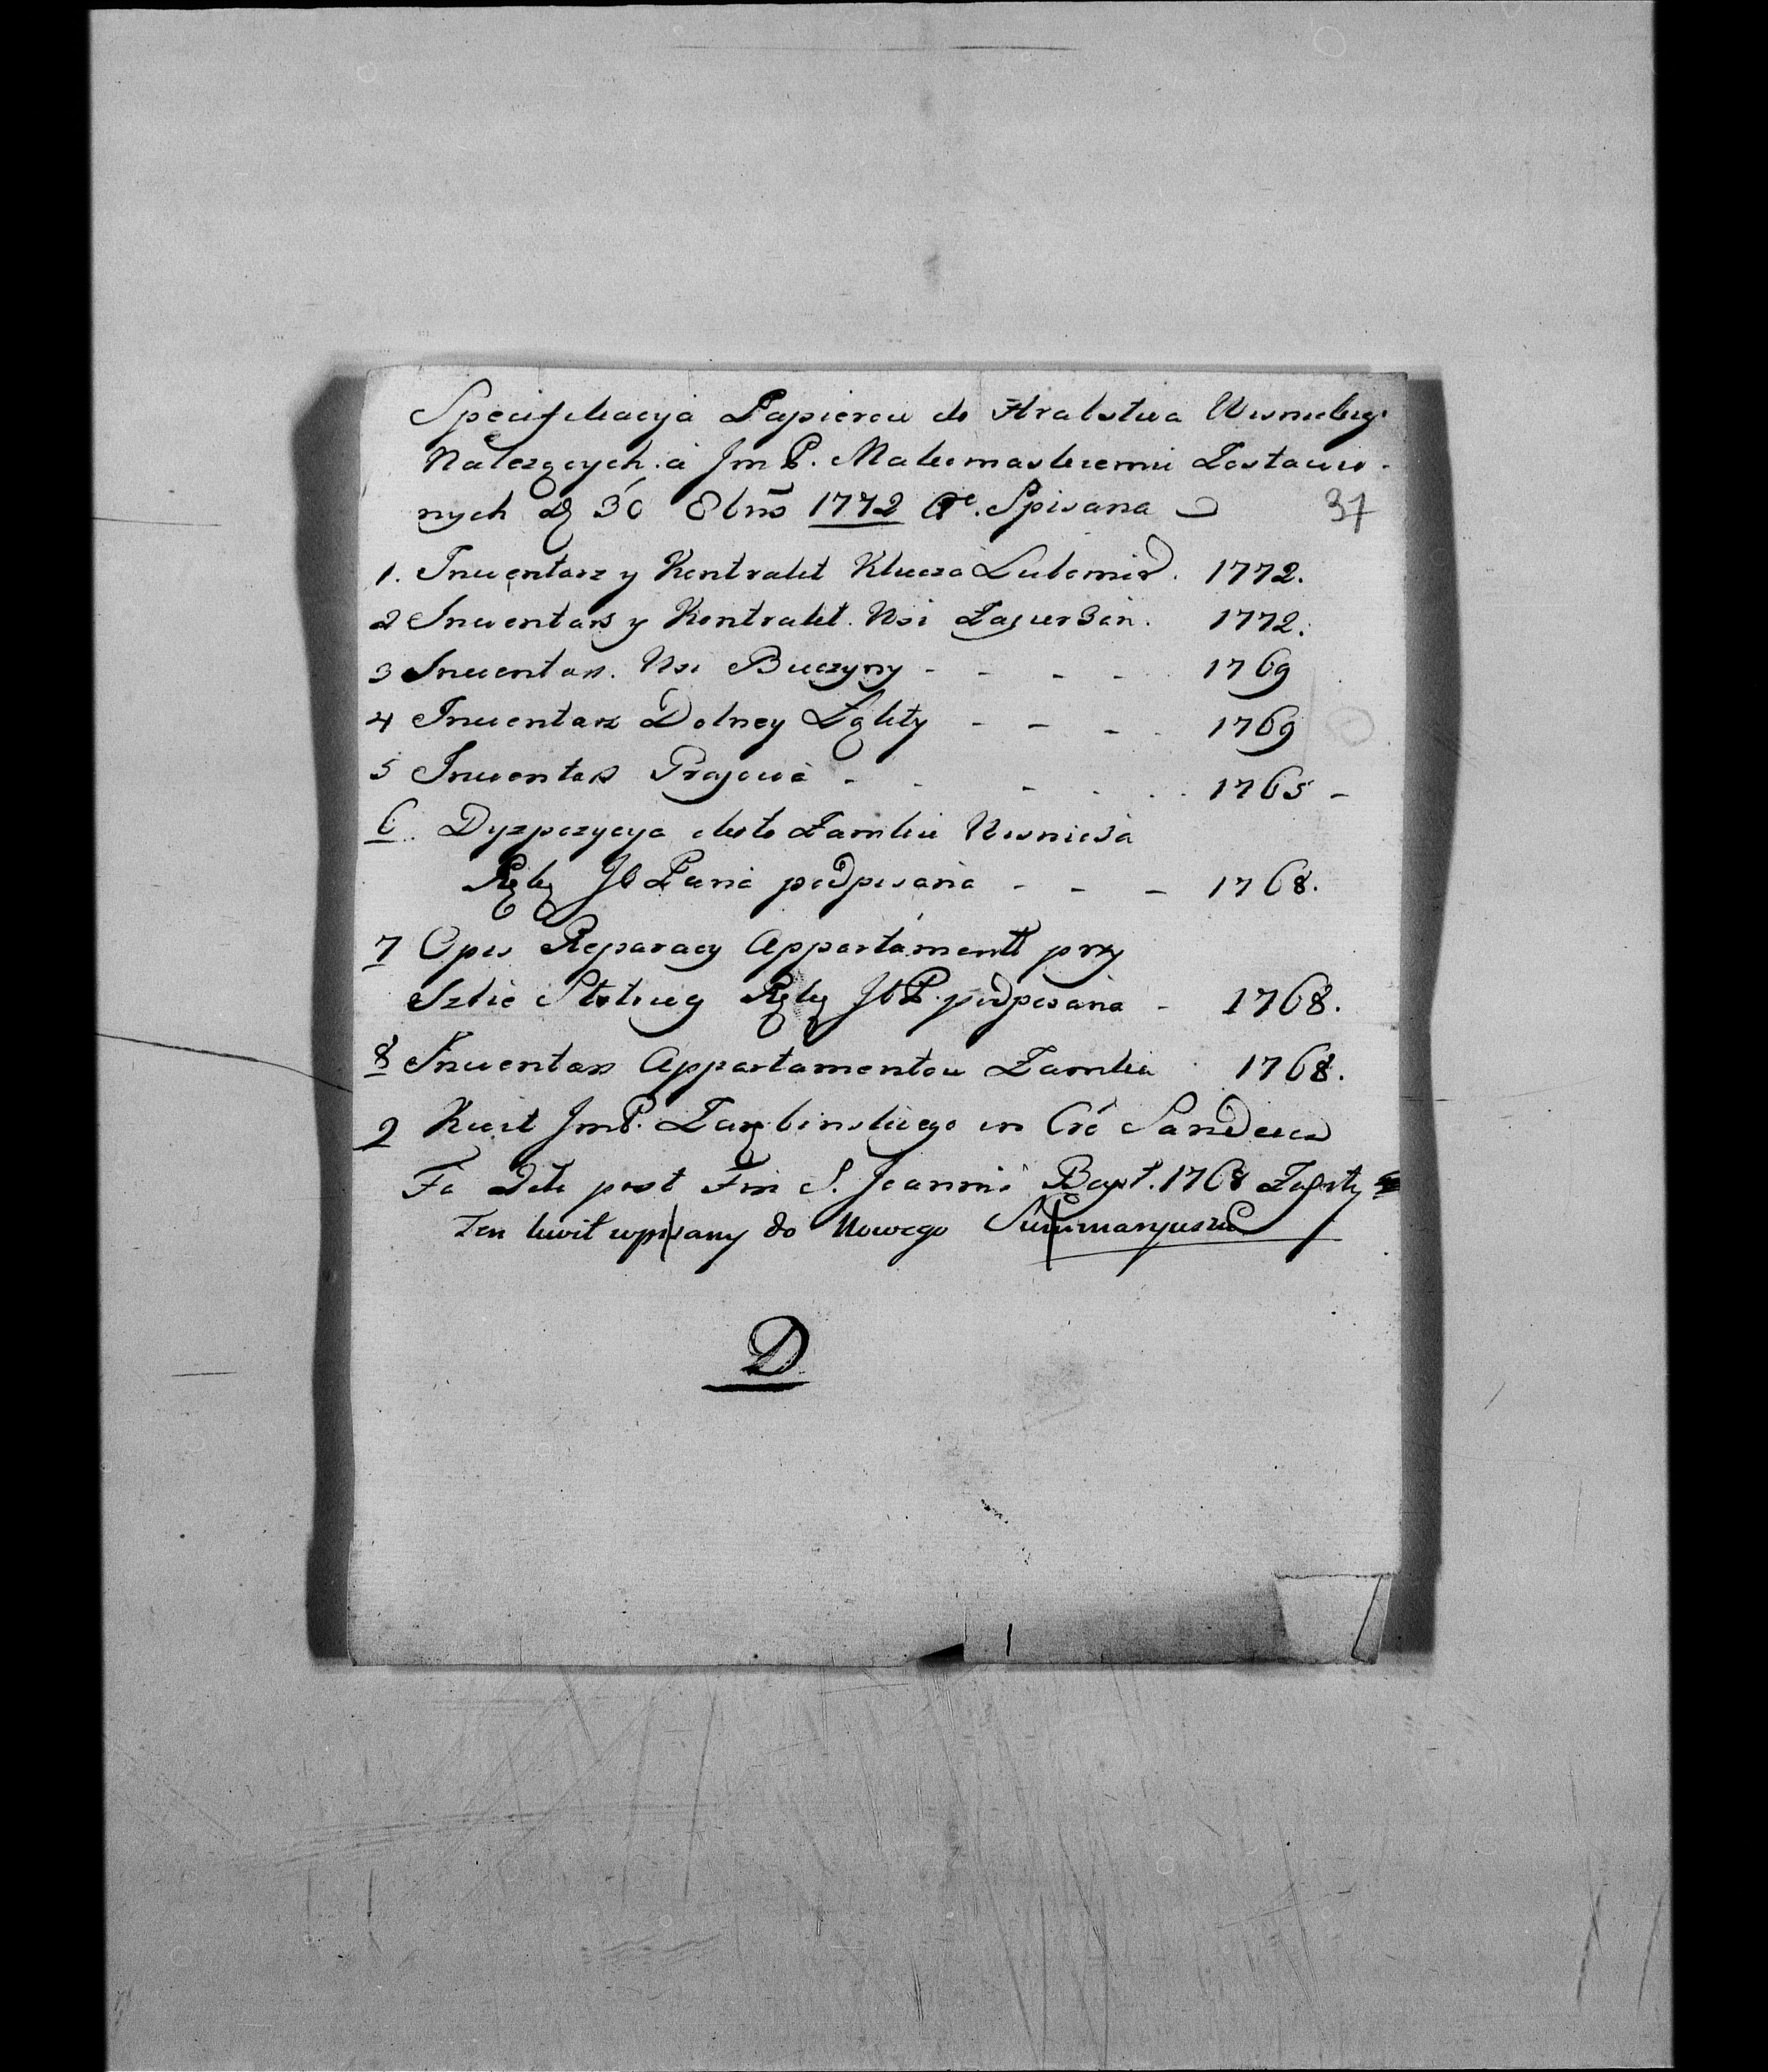 Specifikacya Papierow do Hrabstwa Wisnickigo
Nalezących a Jm P. Makomaskiemu Zostawio-
nych d 30 8bris 1772 Ao. Spisana
37
1. Inwentarz y Kontrakt Klucza Lubomir. 1772.
2 Inwentarz y Kontrakt. Wsi Łagierzan. 1772.
3 Inwentarz. Wsi Buczyny - - - - 1769
4 Inwentarz Dolney Łąkty - - - 1769
5 Inwentarz Grajowa - - - - - 1765 -
6. Dyspozycya około Zamku Wisnicza
Ręką JO Pana podpisana - - - 1768.
7 Opis Reparacy Appartament przy
Szkle Ręką JO P. podpisana - 1768.
8 Inwentarz Appartamentow Zamku 1768.
9 Kwit JmP. in Sandec
Fa post Fm S. Joannis Bapt. 1768
Ten kwit wpisany do Nowego Summaryusza
D